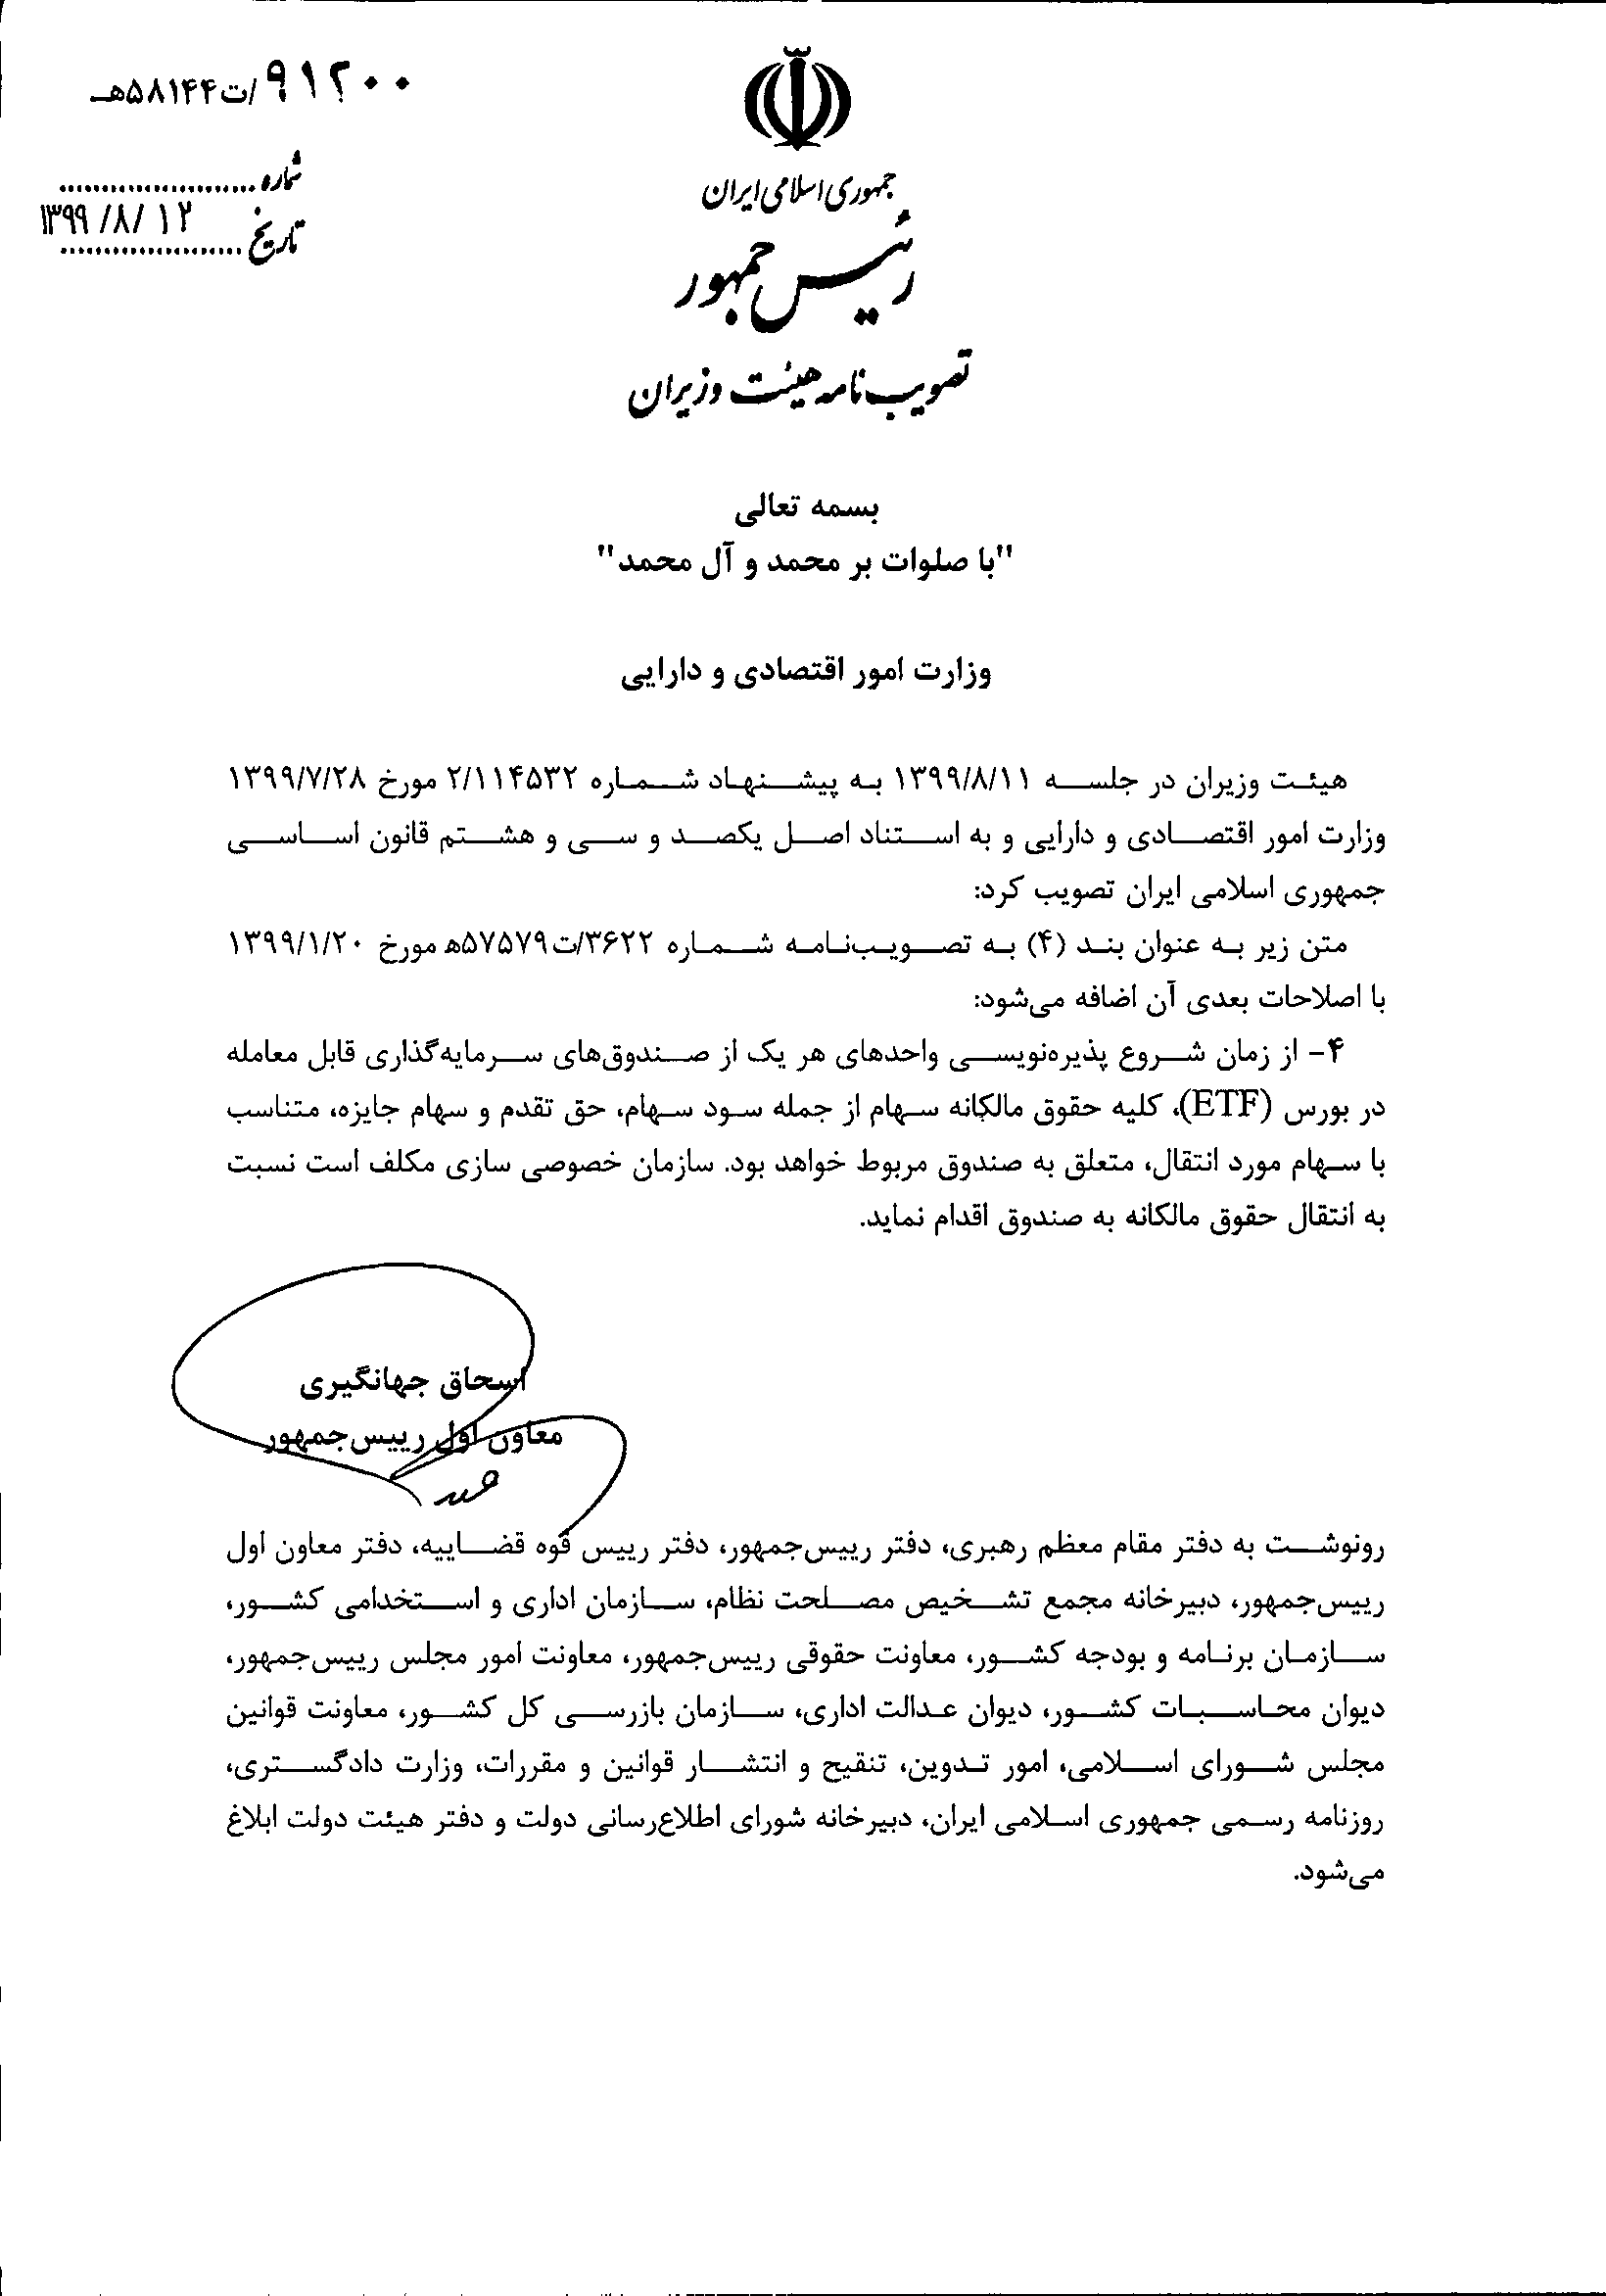 ۹۱۲۰۰/ت۵۸۱۴۴هـ
شماره
۱۳۹۹/۸/۱۲
تاریخ
جمهوری اسلامی ایران
رئیس جمهور
تصویب نامه هیئت وزیران
بسمه تعالی
"با صلوات بر محمد و آل محمد"
وزارت امور اقتصادی و دارایی
هیئت وزیران در جلسه ۱۳۹۹/۸/۱۱ به پیشنهاد شماره ۲/۱۱۴۵۳۲ مورخ ۱۳۹۹/۷/۲۸
وزارت امور اقتصادی و دارایی و به استناد اصل یکصد و سی و هشتم قانون اساسی
جمهوری اسلامی ایران تصویب کرد:
متن زیر به عنوان بند (۴) به تصویب‌نامه شماره ۳۶۲۲/ت۵۷۵۷۹ه مورخ ۱۳۹۹/۱/۲۰
با اصلاحات بعدی آن اضافه می‌شود:
۴- از زمان شروع پذیره‌نویسی واحدهای هر یک از صندوق‌های سرمایه‌گذاری قابل معامله
در بورس (ETF)، کلیه حقوق مالکانه سهام از جمله سود سهام، حق تقدم و سهام جایزه، متناسب
با سهام مورد انتقال، متعلق به صندوق مربوط خواهد بود. سازمان خصوصی سازی مکلف است نسبت
به انتقال حقوق مالکانه به صندوق اقدام نماید.
اسحاق جهانگیری
معاون اول رییس‌جمهور
رونوشت به دفتر مقام معظم رهبری، دفتر رییس‌جمهور، دفتر رییس قوه قضاییه، دفتر معاون اول
رییس‌جمهور، دبیرخانه مجمع تشخیص مصلحت نظام، سازمان اداری و استخدامی کشور،
سازمان برنامه و بودجه کشور، معاونت حقوقی رییس‌جمهور، معاونت امور مجلس رییس‌جمهور،
دیوان محاسبات کشور، دیوان عدالت اداری، سازمان بازرسی کل کشور، معاونت قوانین
مجلس شورای اسلامی، امور تدوین، تنقیح و انتشار قوانین و مقررات، وزارت دادگستری،
روزنامه رسمی جمهوری اسلامی ایران، دبیرخانه شورای اطلاع‌رسانی دولت و دفتر هیئت دولت ابلاغ
می‌شود.